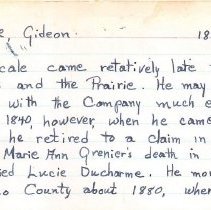 Gideon. 18
cale came retatively late
and the Prairie. He may
with the Company much e
1840, however, when he came
he retired to a claim in
Marie Ann Grenier's death in
sed Lucie Ducharme. He mo
o County about 1880, wher